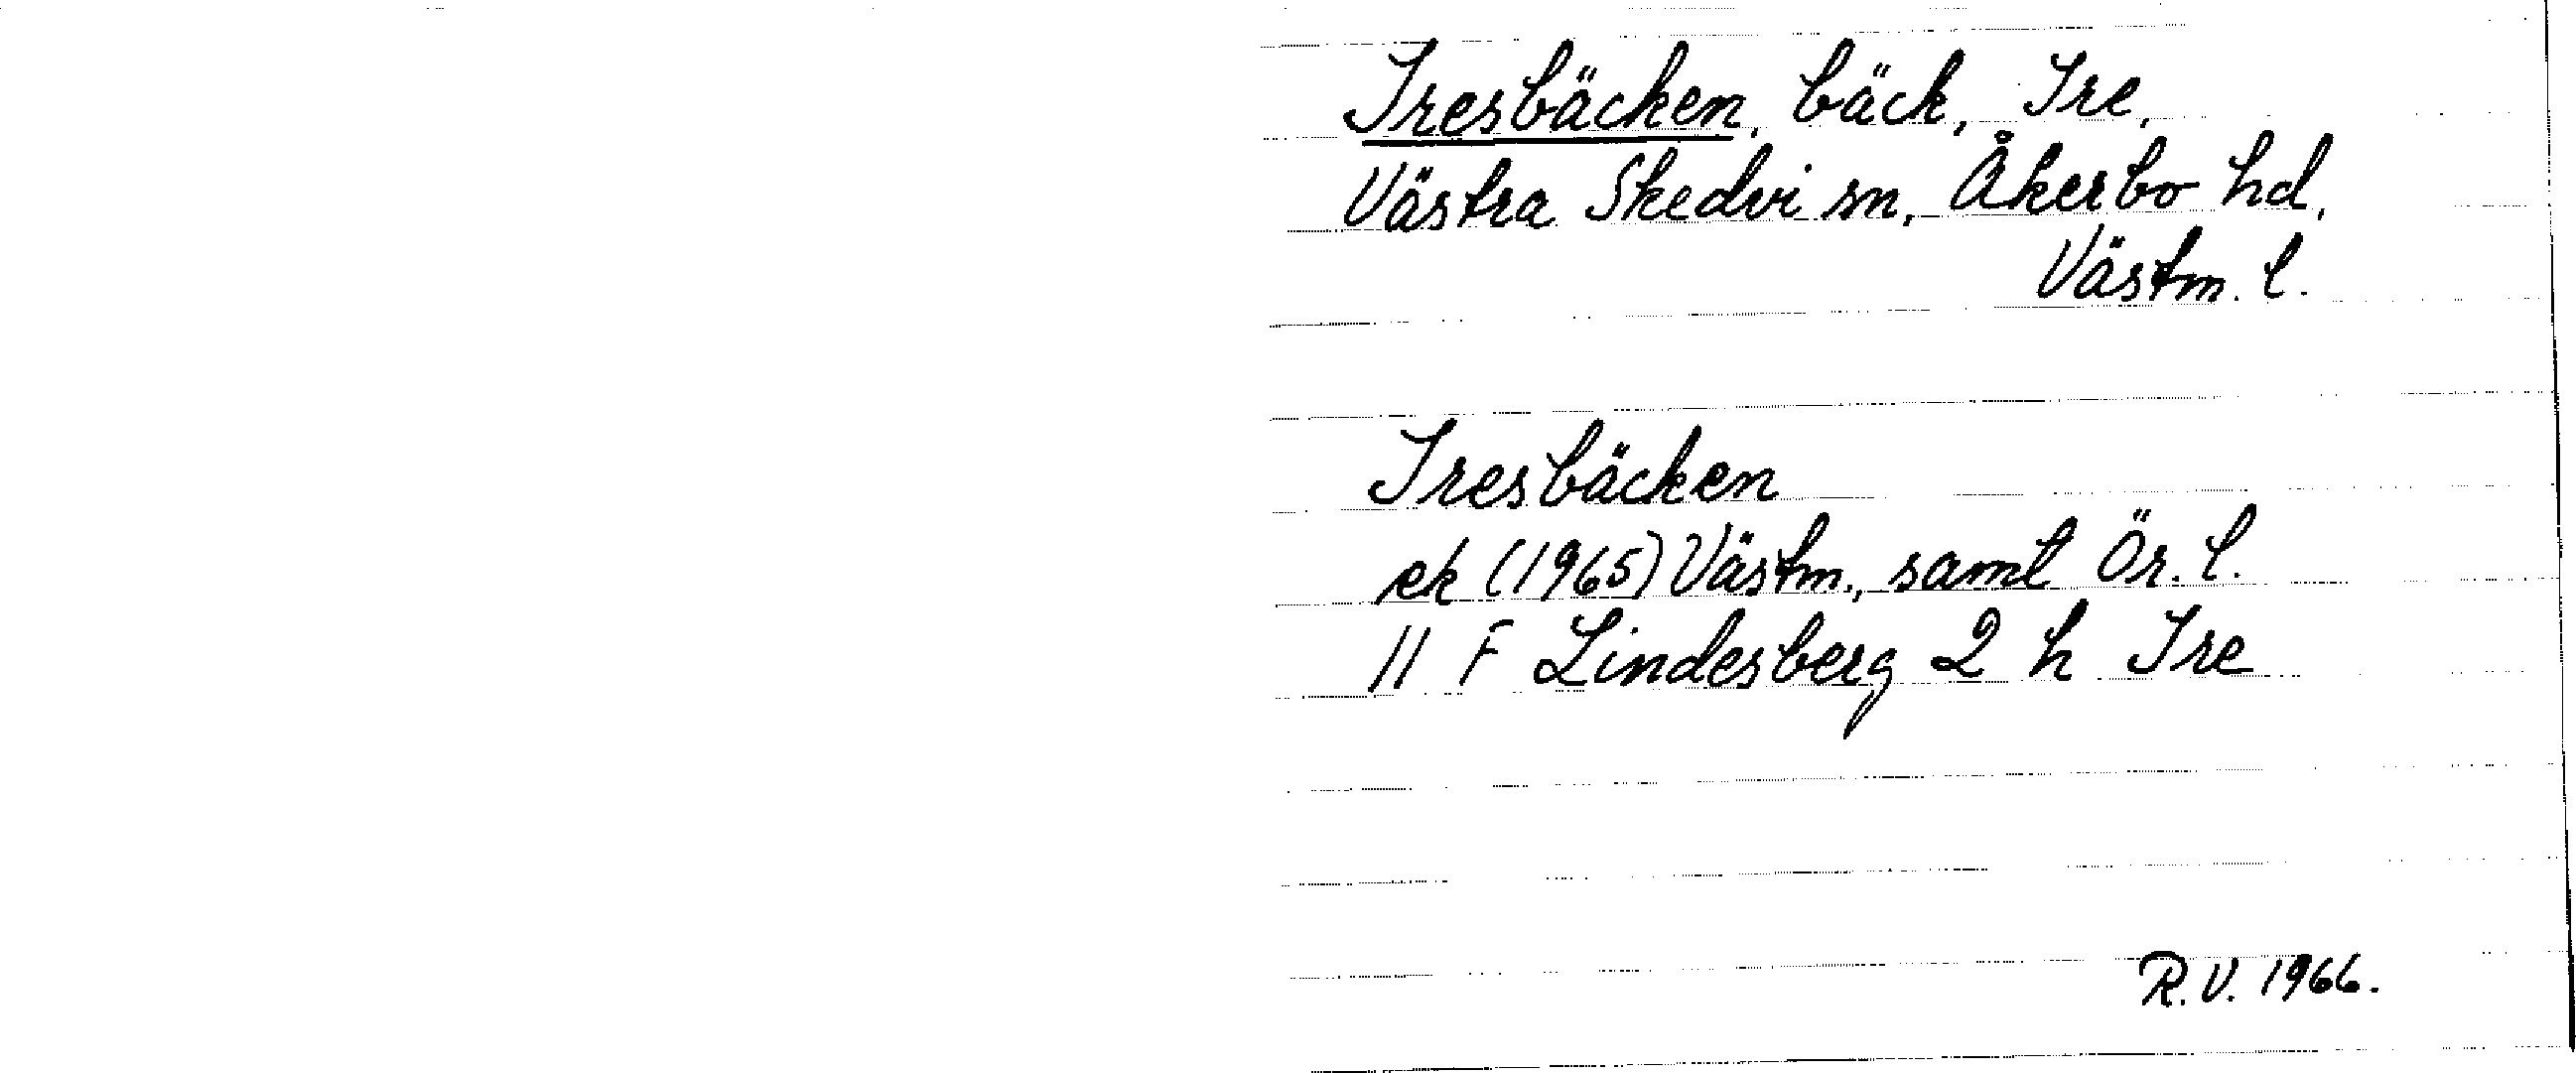 Iresbäcken, bäck, Ire,
Västra Skedvi sn, Åkerbo hd,
Västm. l.
Iresbäcken
ek (1965) Västm., samt Ör. l.
11 F Lindesberg 2 h Ire
R.V. 1966.